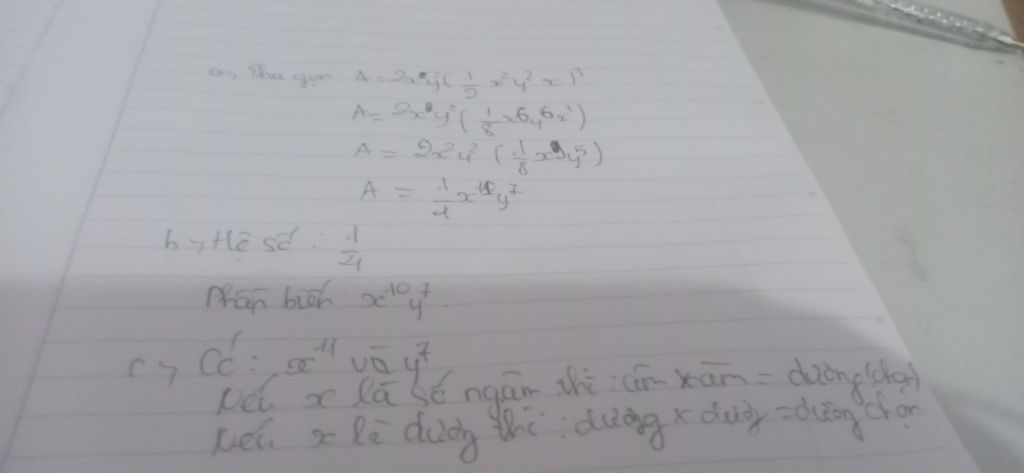 a, Thu gọn A = 2x²y²(1/2 x²y² x)³
A = 2x²y²(1/8 x⁶y⁶x³)
A = 2x²y² (1/8 x⁹y⁵)
A = 1/4 x y⁷
b, Hệ số : 1/4
Phần biến x¹⁰y⁷
c, Có : x¹¹ và y⁷
Nếu x là số ngâm thì : âm x âm = dương (chọn)
Nếu x là dương thì : dương x dương = dương chọn